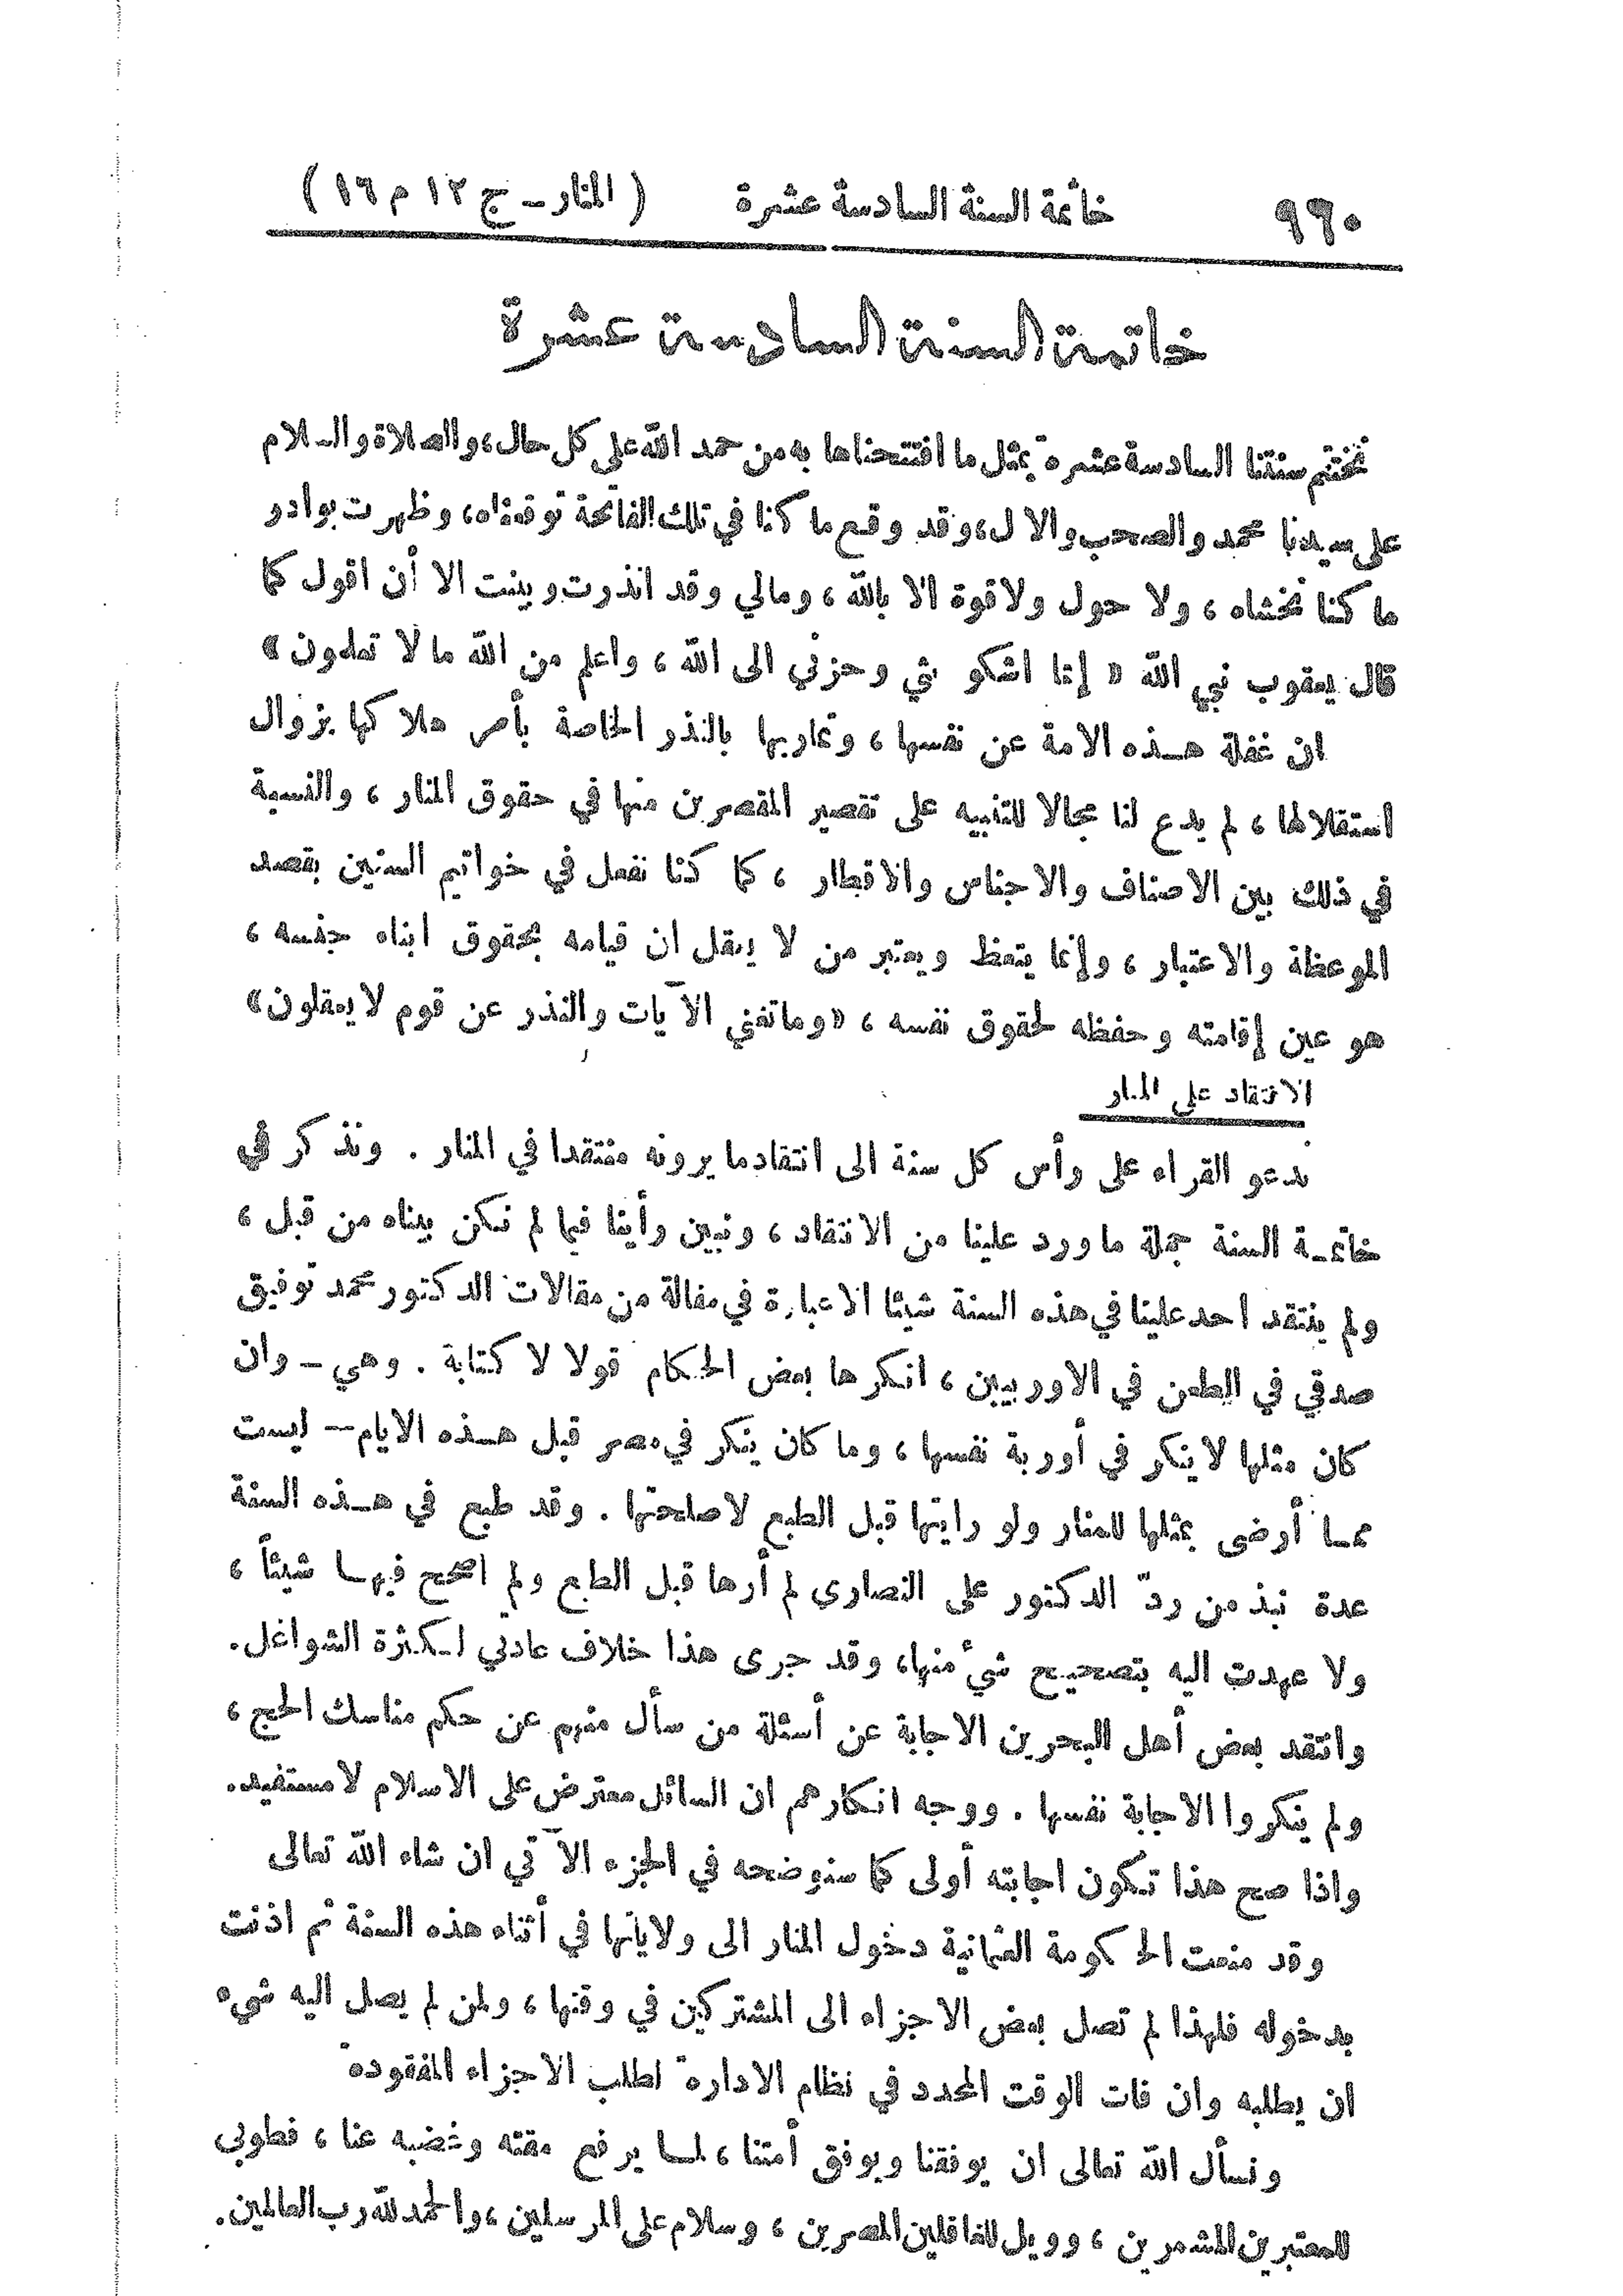 ٩٦٠ خاتمة السنة السادسة عشرة ( المنار ـ ج ١٢ م ١٦ )
خاتمة السنة السادسة عشرة
نختتم سنتنا السادسة عشرة بمثل ما افتتحناها به من حمد الله على كل حال، والصلاة والسلام
على سيدنا محمد والصحب والآل، وقد وقع ما كنا في تلك الفاتحة توقعناه، وظهرت بوادر
ما كنا نخشاه ، ولا حول ولا قوة الا بالله ، ومالي وقد انذرت وبينت الا أن اقول كما
قال يعقوب نبي الله « إنما اشكو بثي وحزني الى الله ، واعلم من الله ما لا تعلمون »
ان غفلة هـذه الامة عن نفسها ، وتماريها بالنذر الخاصة بأمر هلاكها بزوال
استقلالها ، لم يدع لنا مجالا للتنبيه على تقصير المقصرين منها في حقوق المنار ، والنسبة
في ذلك بين الاصناف والاجناس والاقطار ، كما كنا نفعل في خواتيم السنين بقصد
الموعظة والاعتبار ، وإنما يتعظ ويعتبر من لا يعقل ان قيامه بحقوق ابناء جنسه ،
هو عين إقامته وحفظه لحقوق نفسه ، «وماتغني الآيات والنذر عن قوم لايعقلون»
الانتقاد على المنار
ندعو القراء على رأس كل سنة الى انتقاد ما يرونه منتقدا في المنار . ونذكر في
خاتمـة السنة جملة ما ورد علينا من الانتقاد ، ونبين رأينا فيما لم نكن بيناه من قبل ،
ولم ينتقد احد علينا في هذه السنة شيئا الا عبارة في مقالة من مقالات الدكتور محمد توفيق
صدقي في الطعن في الاوربيين ، انكرها بعض الحكام قولا لا كتابة . وهي ـ وان
كان مثلها لا ينكر في أوربة نفسها ، وما كان ينكر في مصر قبل هـذه الايام ـ ليست
ممـا أرضى بمثلها للمنار ولو رايتها قبل الطبع لاصلحتها . وقد طبع في هـذه السنة
عدة نبذ من ردّ الدكتور على النصارى لم أرها قبل الطبع ولم اصحح فيهـا شيئاً ،
ولا عهدت اليه بتصحيح شيء منها، وقد جرى هذا خلاف عادتي لـكثرة الشواغل.
وانتقد بعض أهل البحرين الاجابة عن أسئلة من سأل منهم عن حكم مناسك الحج ،
ولم ينكروا الاجابة نفسها . ووجه انكارهم ان السائل معترض على الاسلام لا مستفيد.
واذا صح هذا تكون اجابته أولى كما سنوضحه في الجزء الآتي ان شاء الله تعالى
وقد منعت الحكومة العثمانية دخول المنار الى ولاياتها في أثناء هذه السنة ثم اذنت
بدخوله فلهذا لم تصل بعض الاجزاء الى المشتركين في وقتها ، ولمن لم يصل اليه شيء
ان يطلبه وان فات الوقت المحدد في نظام الادارة لطلب الاجزاء المفقودة
ونسأل الله تعالى ان يوفقنا ويوفق أمتنا ، لمـا يرفع مقته وغضبه عنا ، فطوبى
للمعتبرين المشمرين ، وويل للغافلين المصرين ، وسلام على المرسلين ، والحمد لله رب العالمين.